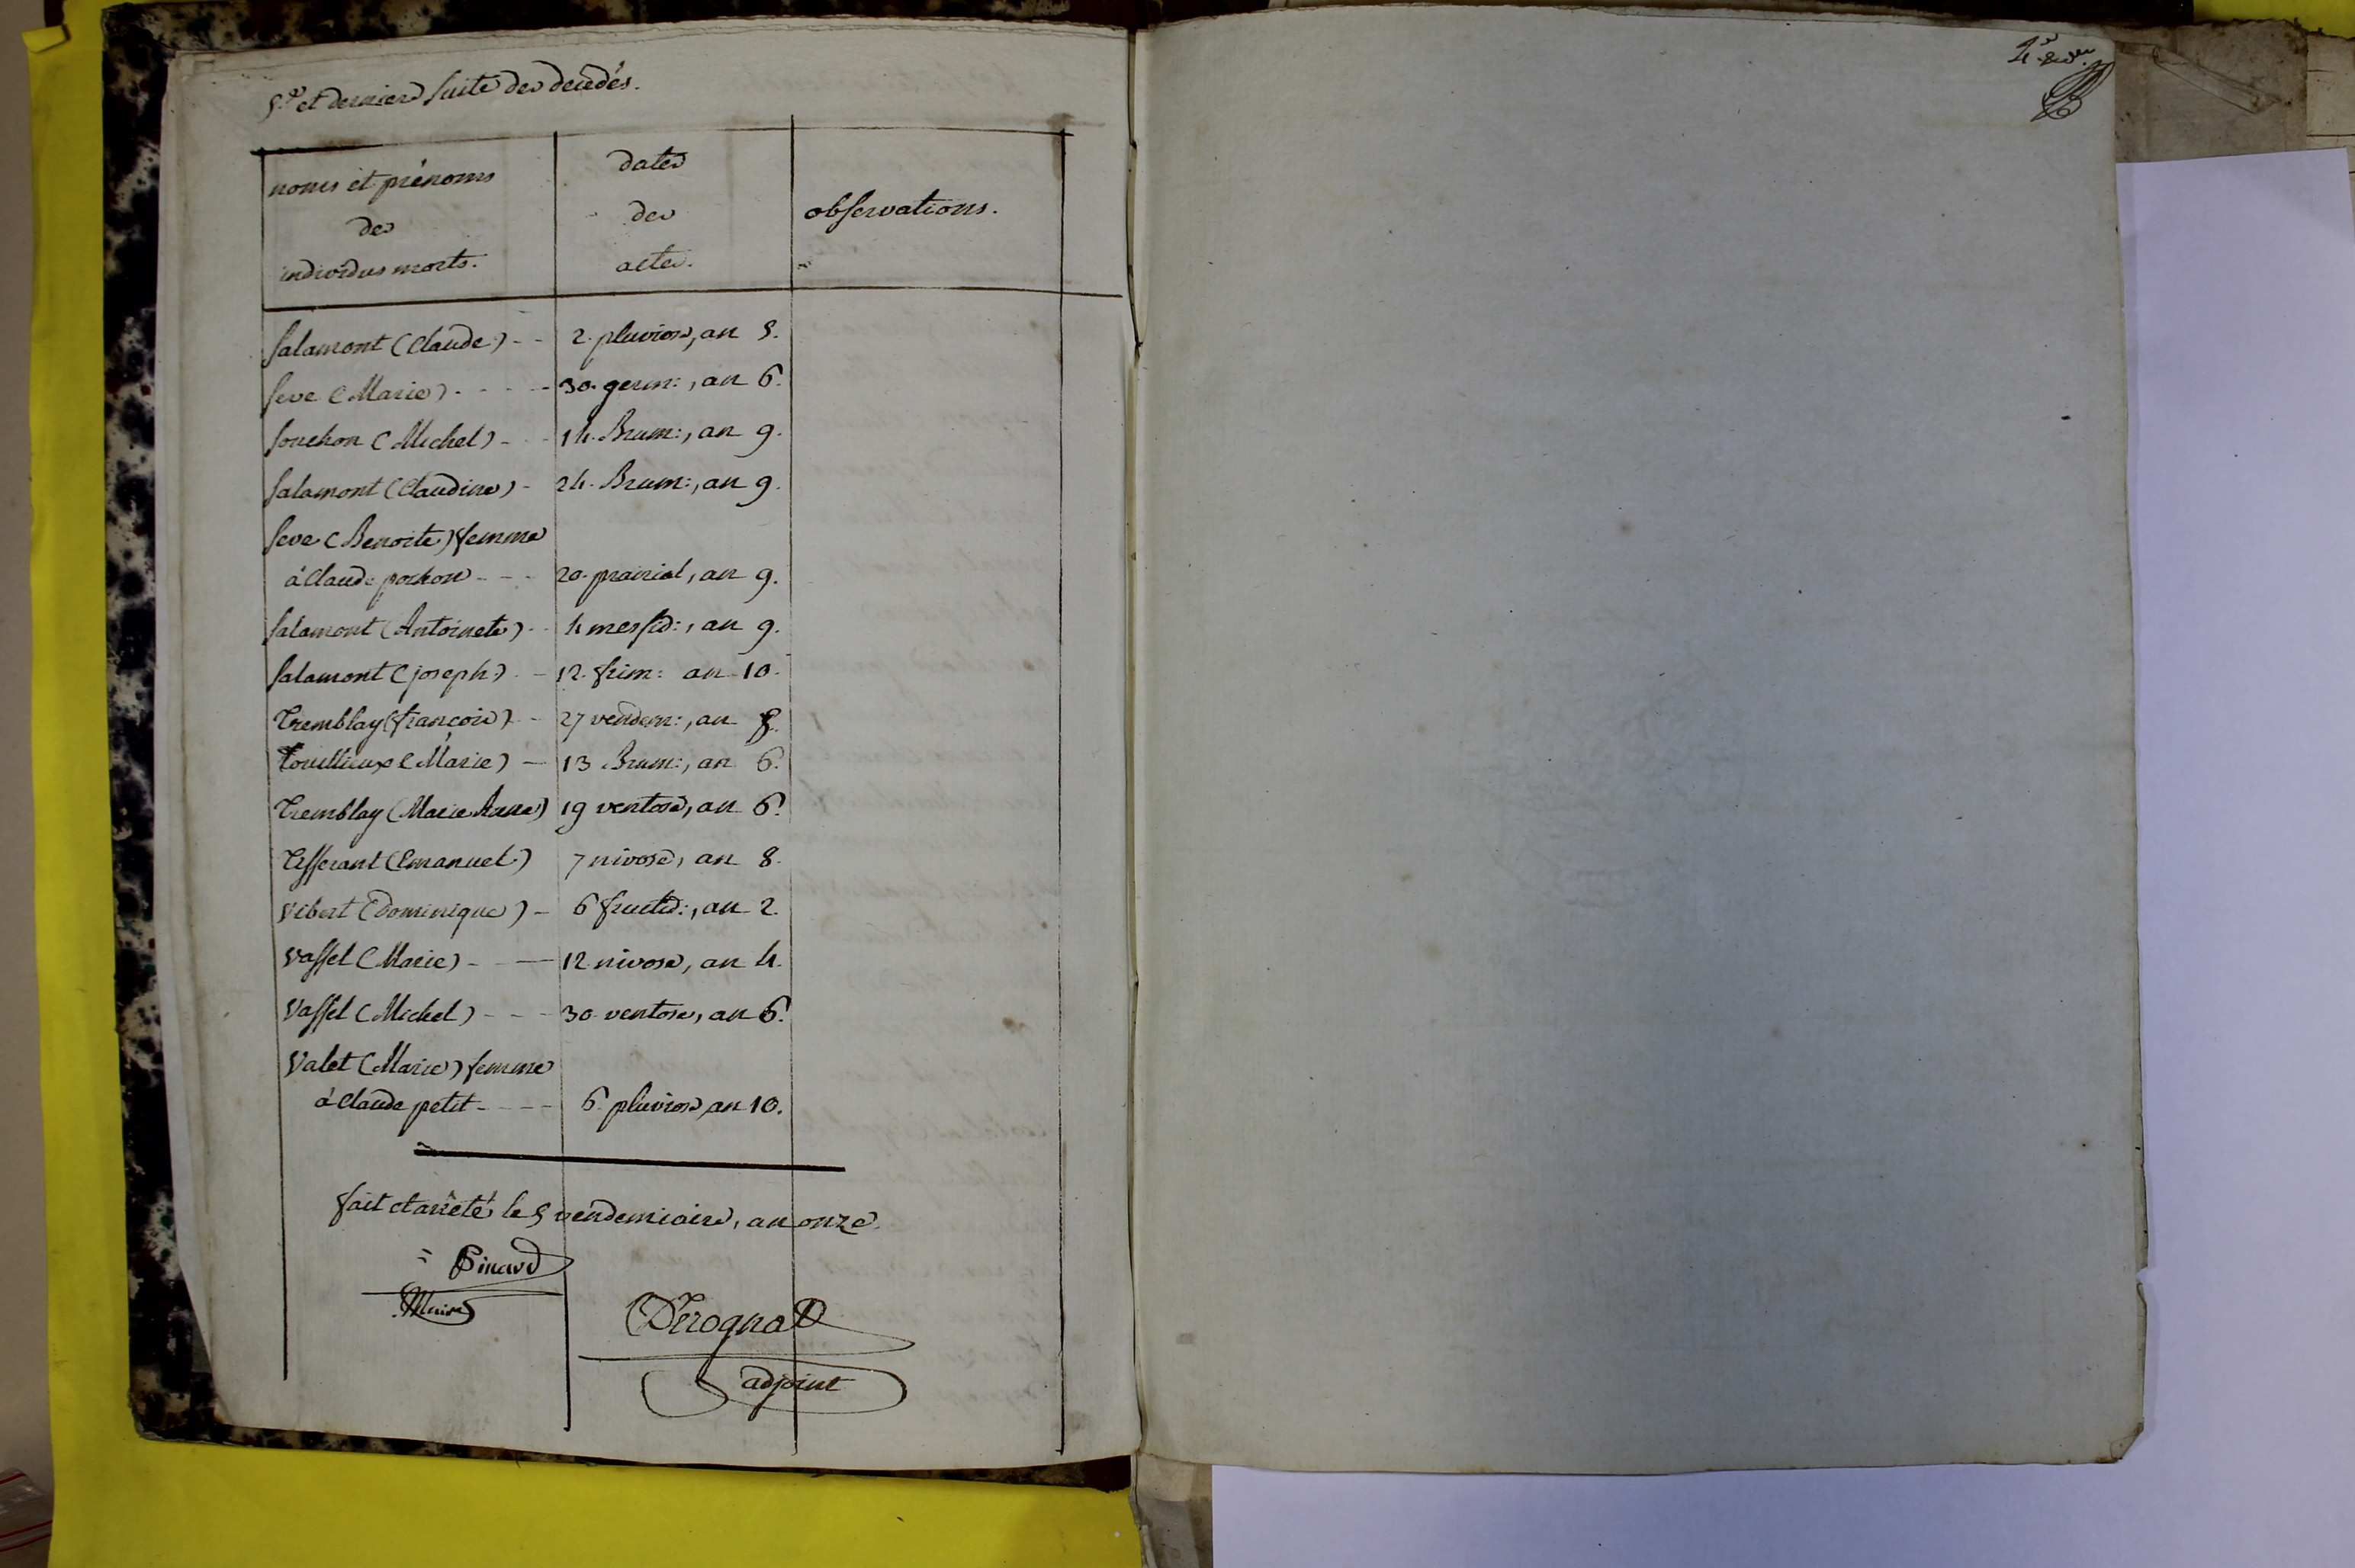 5.e et dernier suite des decédés.
noms et prénoms
des
individus morts.
dates
des
actes.
observations.
Salamont (Claude) - - 2. pluviose, an 5.
Seve (Marie) - - - - 30. germ:, an 6.
Souchon (Michel) - - 14. Brum:, an 9.
Salamont (Claudine) - 24. Brum:, an 9.
Seve (Benoite) femme
à Claude pochon - - - 20. prairial, an 9.
Salamont (Antoinete) - 4 messid:, an 9.
Salamont (joseph) - - 12. frim: an 10.
Tremblay (françois) - - 27 vendem:, an
Touillieux (Marie) - 13 Brum:, an 6.
Tremblay (Marie Anne) 19 ventose, an 6.
Tisserant (Emanuel) 7 nivose, an 8.
Vibert (dominique) - 6 fructid:, an 2.
Vassel (Marie) - - 12 nivose, an 4.
Vassel (Michel) - - - 30 ventose, an 6.
Valet (Marie) femme
à Claude petit - - - - 6. pluviose an 10.
fait et arrêté le 5 vendemiaire, an onze.
Pinard
Maire
Derognat
adjoint